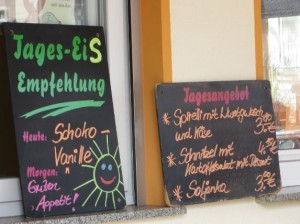 Tages-EiS
Empfehlung
Heute: Schoko-
Vanille
Morgen:
Guten
Appetit!
Tagesangebot
* Spirelli mit Wurstgulasch
und Käse
* Schnitzel mit
Kartoffelsalat mit Dessert
* Soljanka